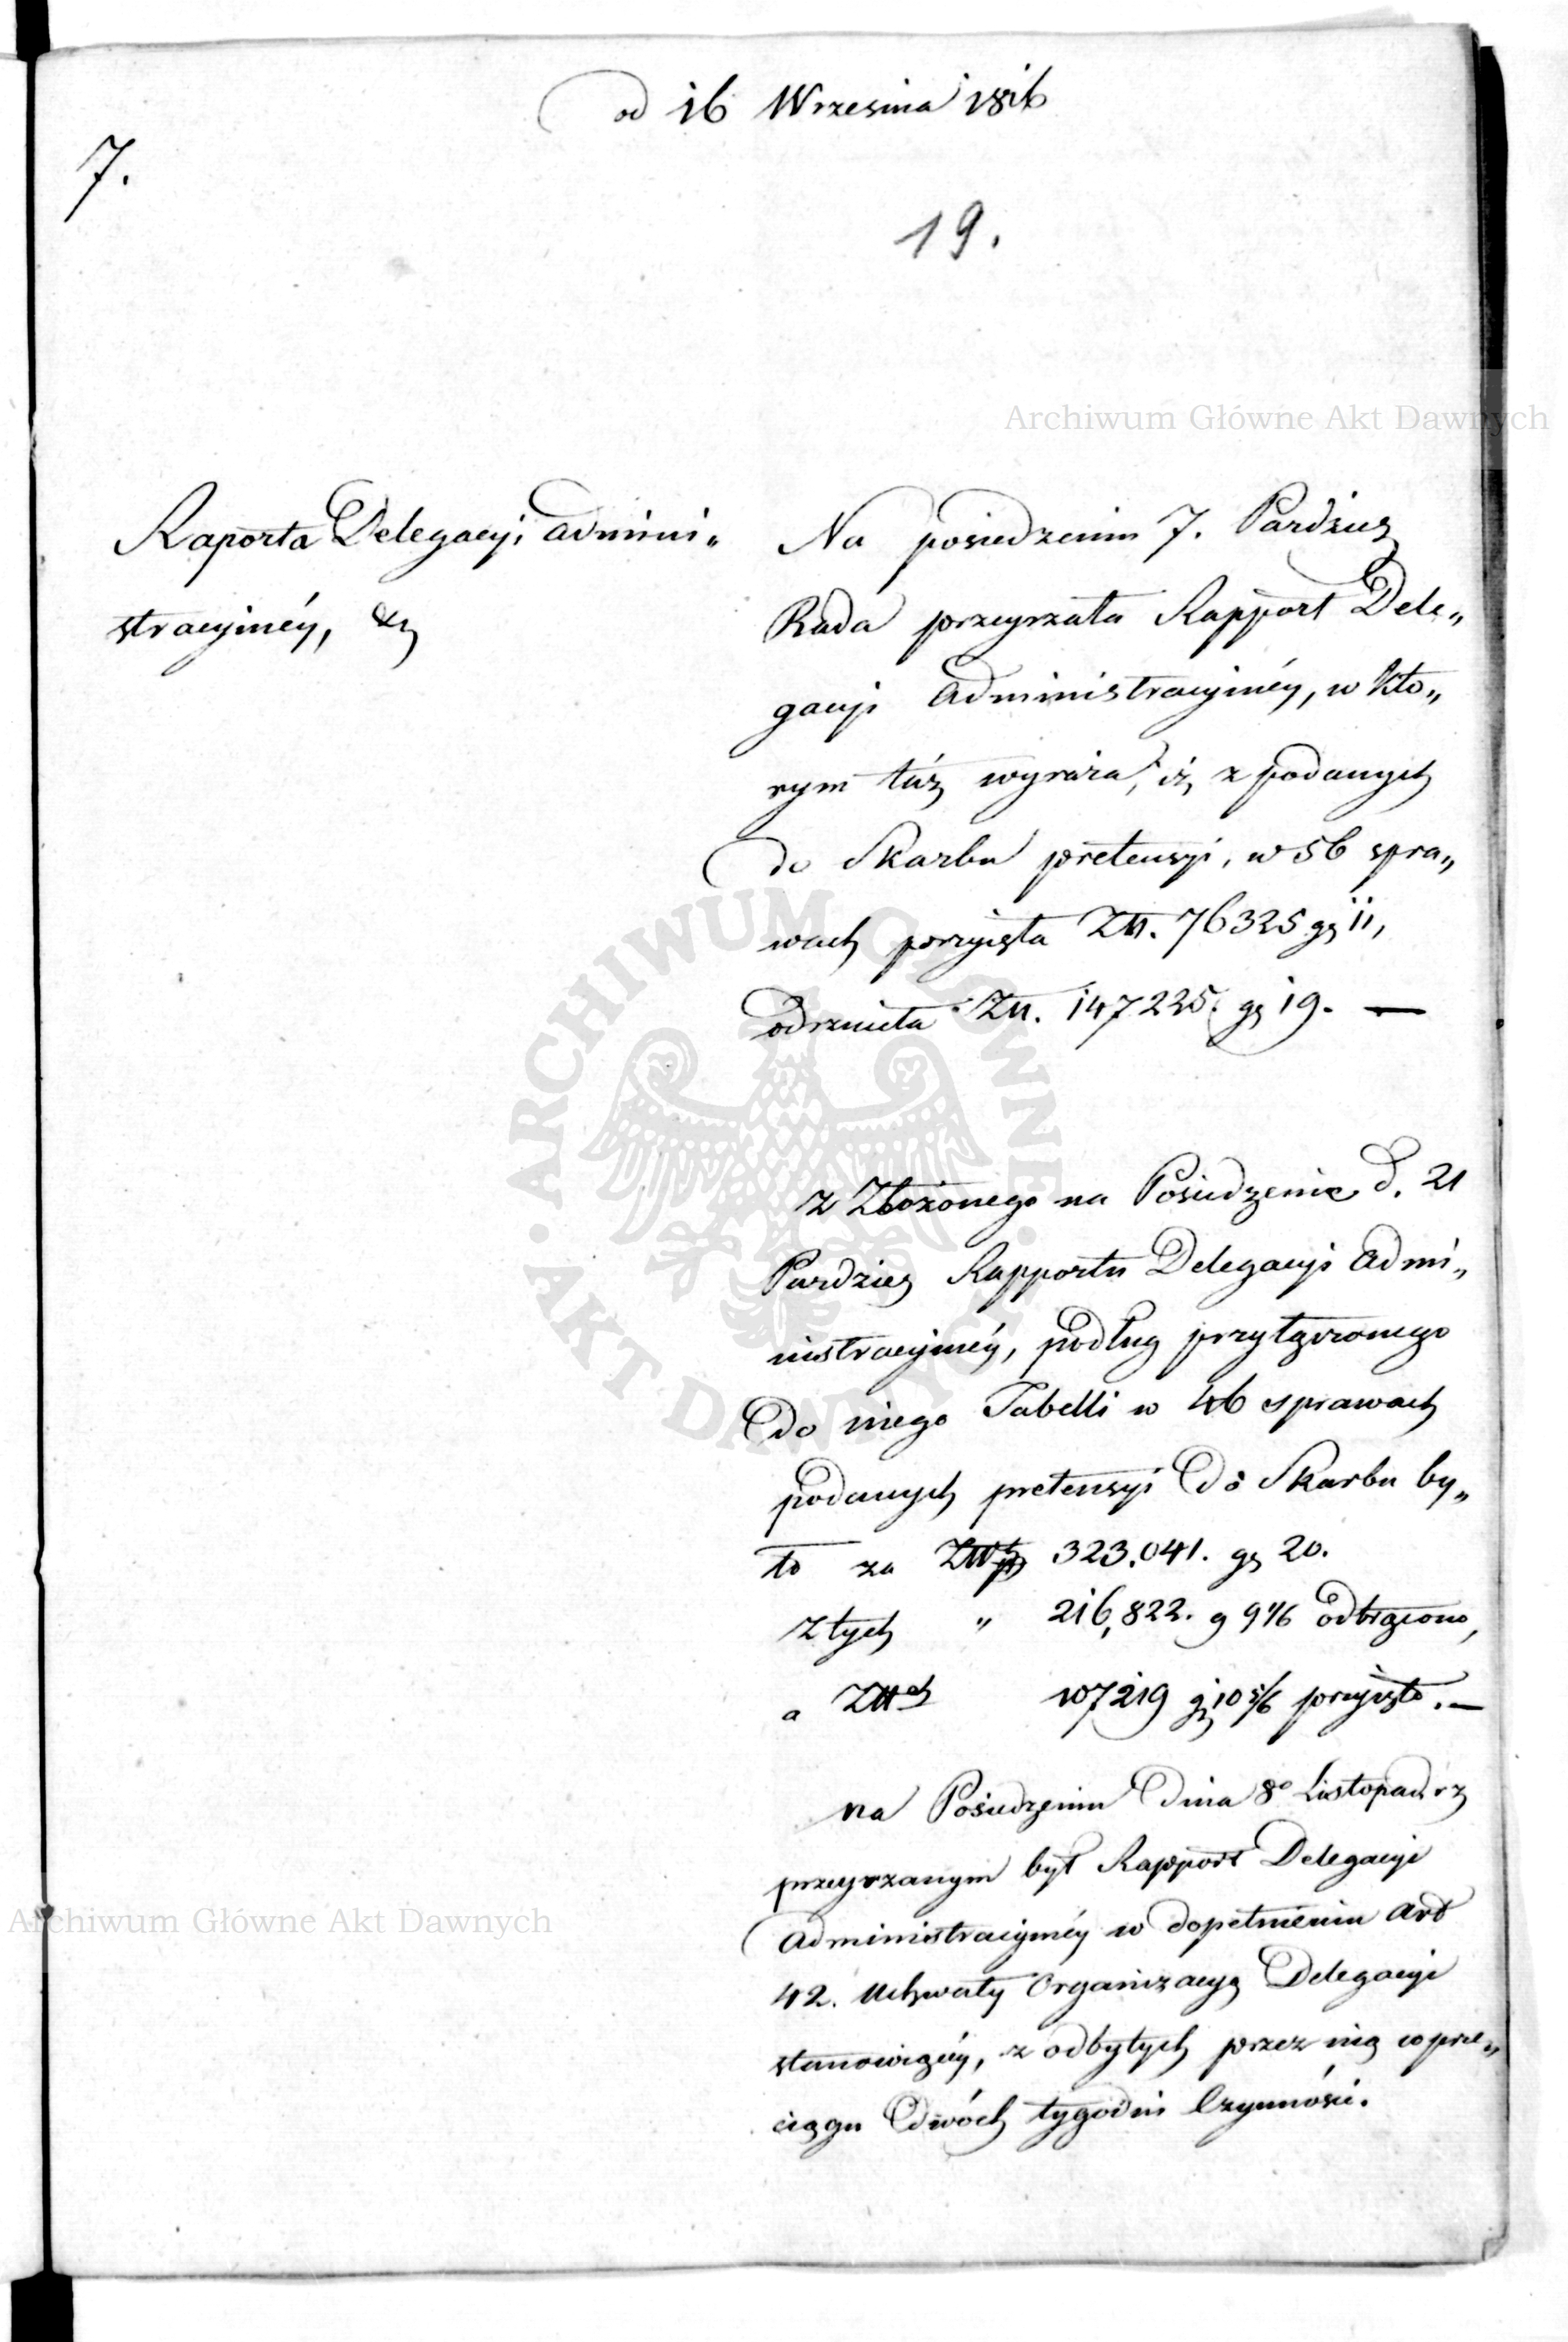 od 16 Wrzesnia 1816
7.
19.
Archiwum Główne Akt Dawnych
Raporta Delegacyi admini„
stracyinéy, &c
Na posiedzeniu 7. Pazdzier
Rada przeyrzała Rapport Dele„
gacyi administracyinéy, w któ„
rym táż wyraża, iż z podanych
do Skarbu pretensyi, w 56 spra„
wach przyięła Złł. 76325 gr 11,
odrzuciła Złł. 147225. gr 19. —
z Złożonego na Posiedzenie d. 21
Pazdzier Rapportu Delegacyi admi„
nistracyinéy, podług przyłączonego
do niego Tabelli w 46 sprawach
podanych pretensyi do Skarbu by„
ło za Złł 323,041. gr 20.
z tych „ 216,822. g 9 1/6 odtrącono,
a Złłch 107219 gr 10 5/6 przyięto. —
na Posiedzeniu dnia 8o Listopad rz
przeyrzanym był Rapport Delegacyi
administracyinéy w dopełnieniu art
42. Uchwały Organizacyą Delegacyi
stanowiącéy, z odbytych przez nią w prze„
ciągu dwóch tygodni Czynności.
Archiwum Główne Akt Dawnych
ARCHIWUM GŁÓWNE
AKT DAWNYCH